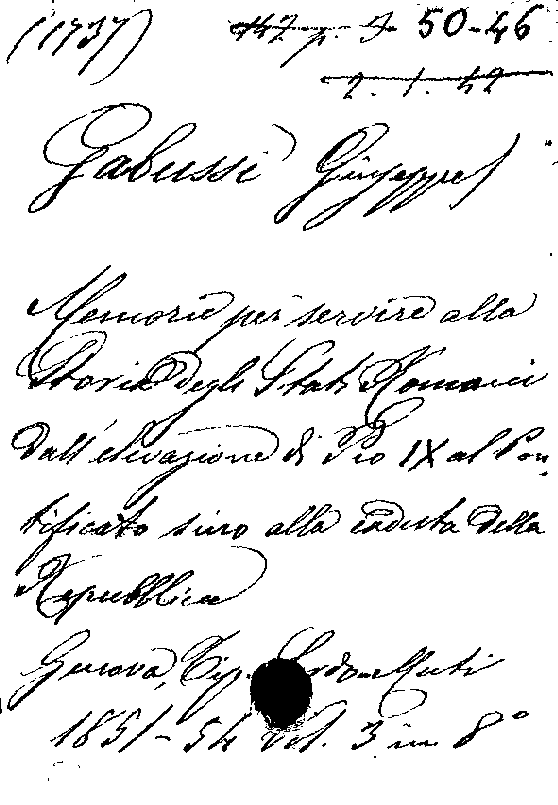 (1737) 50-46
2. 1. 42
Gabussi Giuseppe
Memorie per servire alla
Storia degli Stati Romani
dall'elevazione di Pio IX al Pon-
tificato sino alla caduta della
Repubblica
Genova, Tip. Sordo-Muti
1851-54 Vol. 3 in 8°